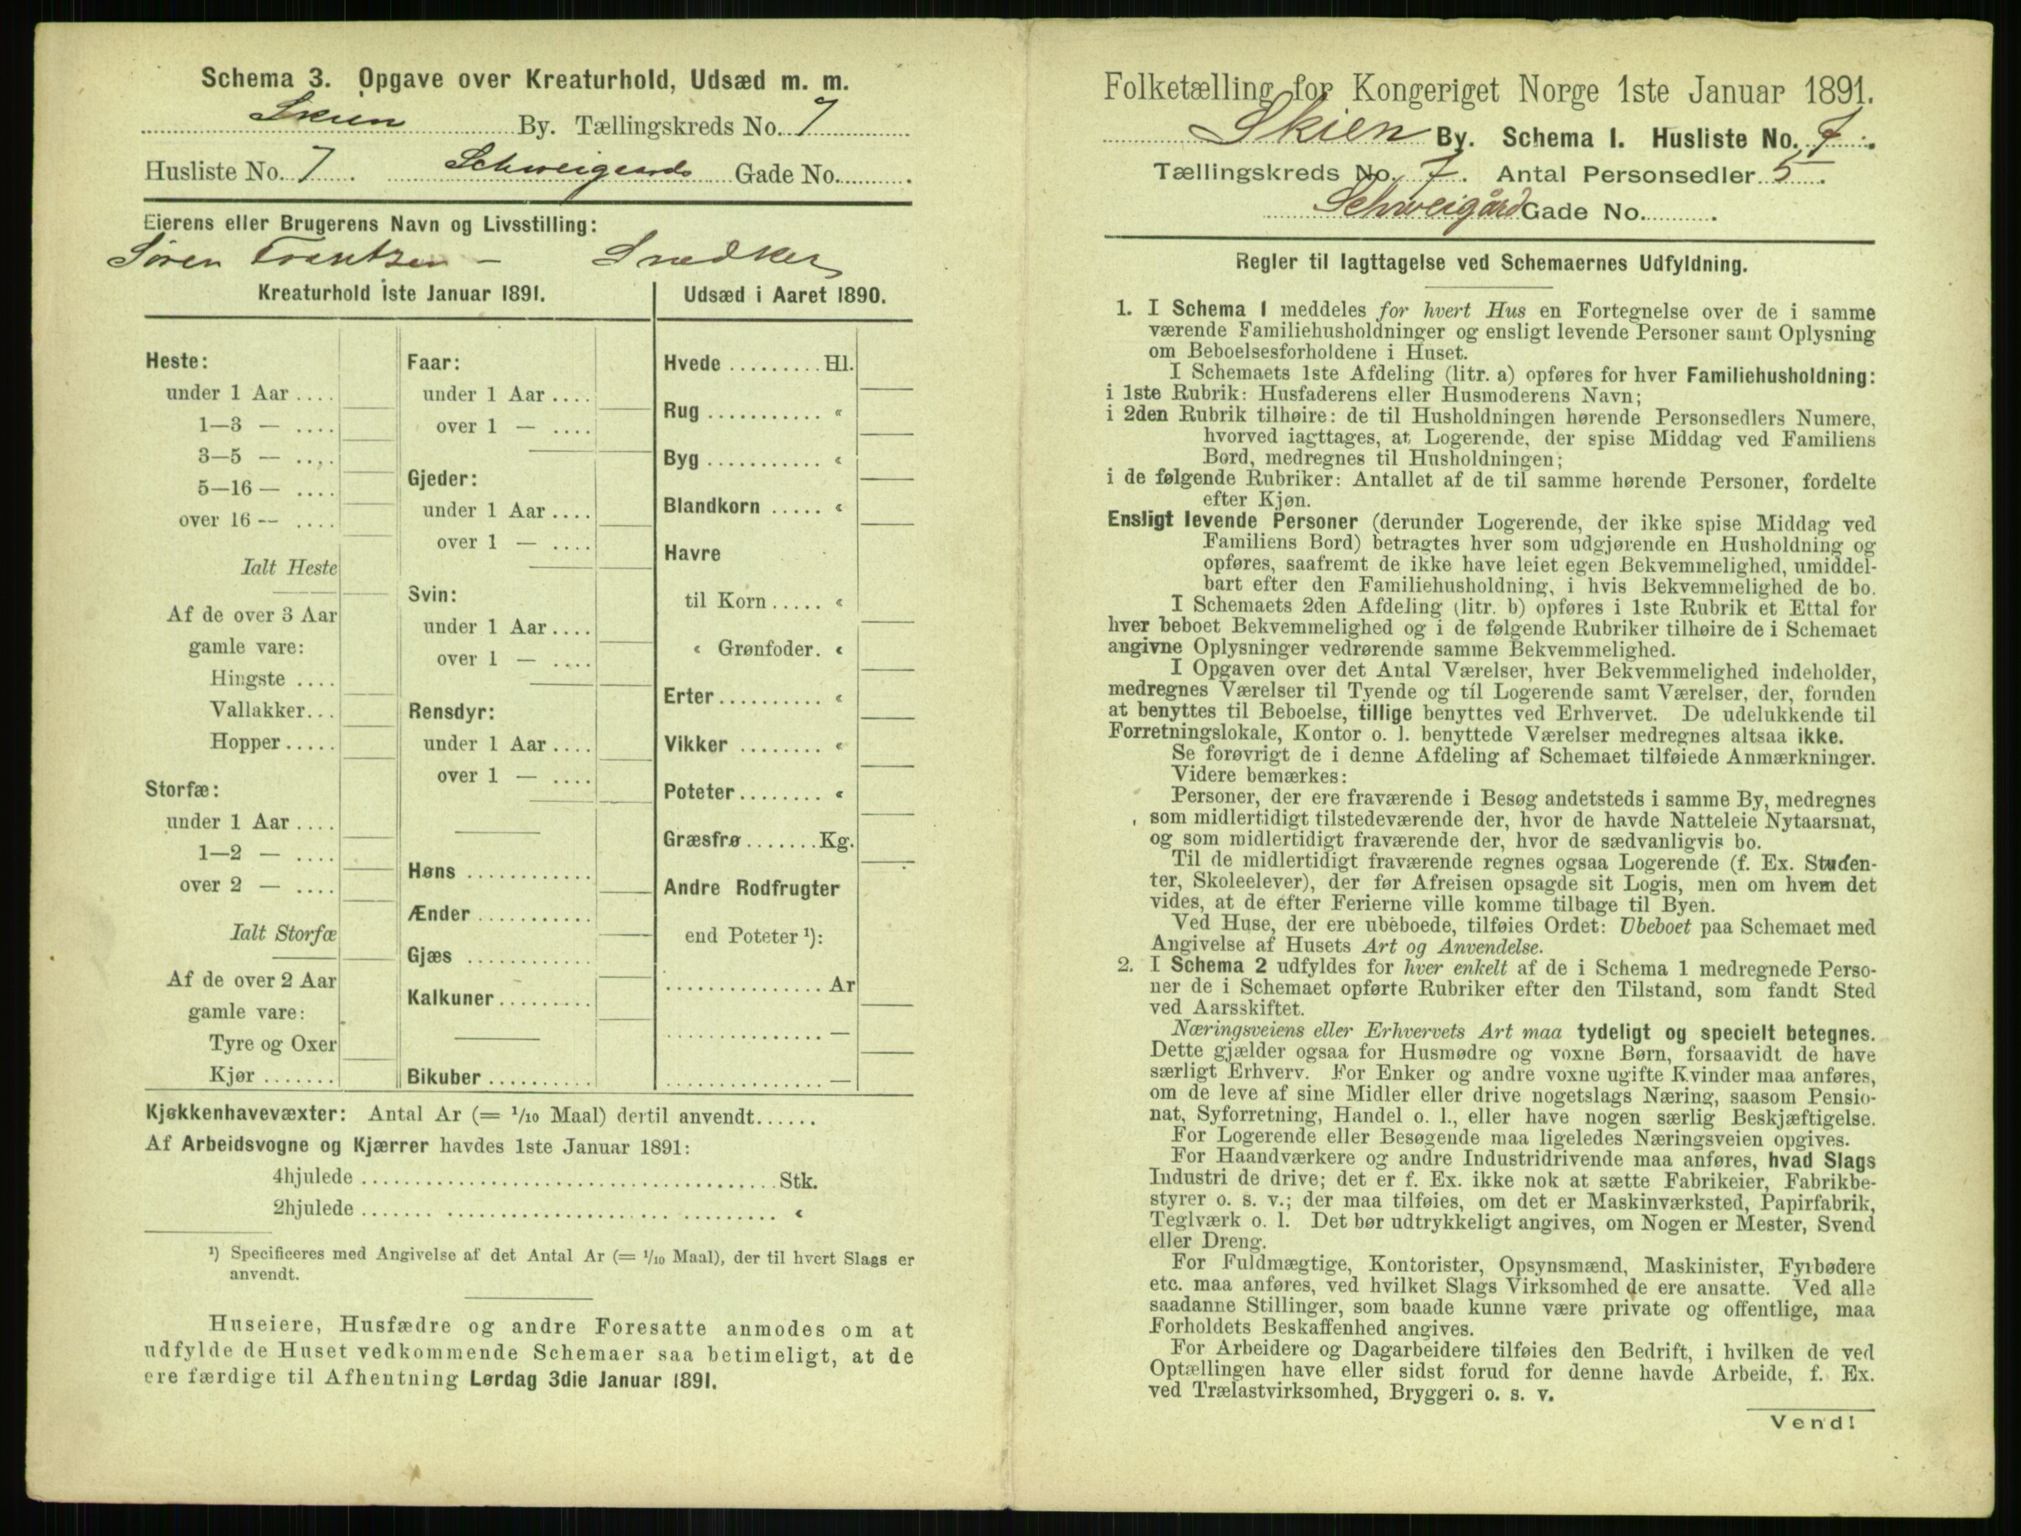 Schema 3. Opgave over Kreaturhold, Udsæd m. m.
Skien By. Tællingskreds No. 7
Husliste No. 7. Schweigaards Gade No.
Eierens eller Brugerens Navn og Livsstilling:
Søren Frantzen - Snedker
Kreaturhold 1ste Januar 1891.
Heste:
under 1 Aar ....
1—3 — ....
3—5 — ....
5—16 — ....
over 16 — ....
Ialt Heste
Af de over 3 Aar
gamle vare:
Hingste ....
Vallakker...
Hopper.....
Storfæ:
under 1 Aar ....
1—2 — ....
over 2 — ....
Ialt Storfæ
Af de over 2 Aar
gamle vare:
Tyre og Oxer
Kjør .......
Faar:
under 1 Aar ....
over 1 — ....
Gjeder:
under 1 Aar ....
over 1 — ....
Svin:
under 1 Aar ....
over 1 — ....
Rensdyr:
under 1 Aar ....
over 1 — ....
Høns ............
Ænder ...........
Gjæs ............
Kalkuner .........
Bikuber ..........
Udsæd i Aaret 1890.
Hvede ......... Hl.
Rug ........... «
Byg ........... «
Blandkorn ..... «
Havre
til Korn ..... «
« Grønfoder. «
Erter .......... «
Vikker ........ «
Poteter ........ «
Græsfrø ....... Kg.
Andre Rodfrugter
end Poteter ¹):
............... Ar
............... —
............... —
Kjøkkenhavevæxter: Antal Ar (= 1/10 Maal) dertil anvendt......
Af Arbeidsvogne og Kjærrer havdes 1ste Januar 1891:
4hjulede ........................................ Stk.
2hjulede ........................................ «
¹) Specificeres med Angivelse af det Antal Ar (= 1/10 Maal), der til hvert Slags er
anvendt.
Huseiere, Husfædre og andre Foresatte anmodes om at
udfylde de Huset vedkommende Schemaer saa betimeligt, at de
ere færdige til Afhentning Lørdag 3die Januar 1891.
Folketælling for Kongeriget Norge 1ste Januar 1891.
Skien By. Schema I. Husliste No. 7.
Tællingskreds No. 7. Antal Personsedler 5.
Schweigård Gade No. .
Regler til Iagttagelse ved Schemaernes Udfyldning.
1. I Schema 1 meddeles for hvert Hus en Fortegnelse over de i samme
værende Familiehusholdninger og ensligt levende Personer samt Oplysning
om Beboelsesforholdene i Huset.
I Schemaets 1ste Afdeling (litr. a) opføres for hver Familiehusholdning:
i 1ste Rubrik: Husfaderens eller Husmoderens Navn;
i 2den Rubrik tilhøire: de til Husholdningen hørende Personsedlers Numere,
hvorved iagttages, at Logerende, der spise Middag ved Familiens
Bord, medregnes til Husholdningen;
i de følgende Rubriker: Antallet af de til samme hørende Personer, fordelte
efter Kjøn.
Ensligt levende Personer (derunder Logerende, der ikke spise Middag ved
Familiens Bord) betragtes hver som udgjørende en Husholdning og
opføres, saafremt de ikke have leiet egen Bekvemmelighed, umiddel-
bart efter den Familiehusholdning, i hvis Bekvemmelighed de bo.
I Schemaets 2den Afdeling (litr. b) opføres i 1ste Rubrik et Ettal for
hver beboet Bekvemmelighed og i de følgende Rubriker tilhøire de i Schemaet
angivne Oplysninger vedrørende samme Bekvemmelighed.
I Opgaven over det Antal Værelser, hver Bekvemmelighed indeholder,
medregnes Værelser til Tyende og til Logerende samt Værelser, der, foruden
at benyttes til Beboelse, tillige benyttes ved Erhvervet. De udelukkende til
Forretningslokale, Kontor o. l. benyttede Værelser medregnes altsaa ikke.
Se forøvrigt de i denne Afdeling af Schemaet tilføiede Anmærkninger.
Videre bemærkes:
Personer, der ere fraværende i Besøg andetsteds i samme By, medregnes
som midlertidigt tilstedeværende der, hvor de havde Natteleie Nytaarsnat,
og som midlertidigt fraværende der, hvor de sædvanligvis bo.
Til de midlertidigt fraværende regnes ogsaa Logerende (f. Ex. Studen-
ter, Skoleelever), der før Afreisen opsagde sit Logis, men om hvem det
vides, at de efter Ferierne ville komme tilbage til Byen.
Ved Huse, der ere ubeboede, tilføies Ordet: Ubeboet paa Schemaet med
Angivelse af Husets Art og Anvendelse.
2. I Schema 2 udfyldes for hver enkelt af de i Schema 1 medregnede Perso-
ner de i Schemaet opførte Rubriker efter den Tilstand, som fandt Sted
ved Aarsskiftet.
Næringsveiens eller Erhvervets Art maa tydeligt og specielt betegnes.
Dette gjælder ogsaa for Husmødre og voxne Børn, forsaavidt de have
særligt Erhverv. For Enker og andre voxne ugifte Kvinder maa anføres,
om de leve af sine Midler eller drive nogetslags Næring, saasom Pensio-
nat, Syforretning, Handel o. l., eller have nogen særlig Beskjæftigelse.
For Logerende eller Besøgende maa ligeledes Næringsveien opgives.
For Haandværkere og andre Industridrivende maa anføres, hvad Slags
Industri de drive; det er f. Ex. ikke nok at sætte Fabrikeier, Fabrikbe-
styrer o. s. v.; der maa tilføies, om det er Maskinværksted, Papirfabrik,
Teglværk o. l. Det bør udtrykkeligt angives, om Nogen er Mester, Svend
eller Dreng.
For Fuldmægtige, Kontorister, Opsynsmænd, Maskinister, Fyrbødere
etc. maa anføres, ved hvilket Slags Virksomhed de ere ansatte. Ved alle
saadanne Stillinger, som baade kunne være private og offentlige, maa
Forholdets Beskaffenhed angives.
For Arbeidere og Dagarbeidere tilføies den Bedrift, i hvilken de ved
Optællingen have eller sidst forud for denne havde Arbeide, f. Ex.
ved Trælastvirksomhed, Bryggeri o. s. v.
Vend!